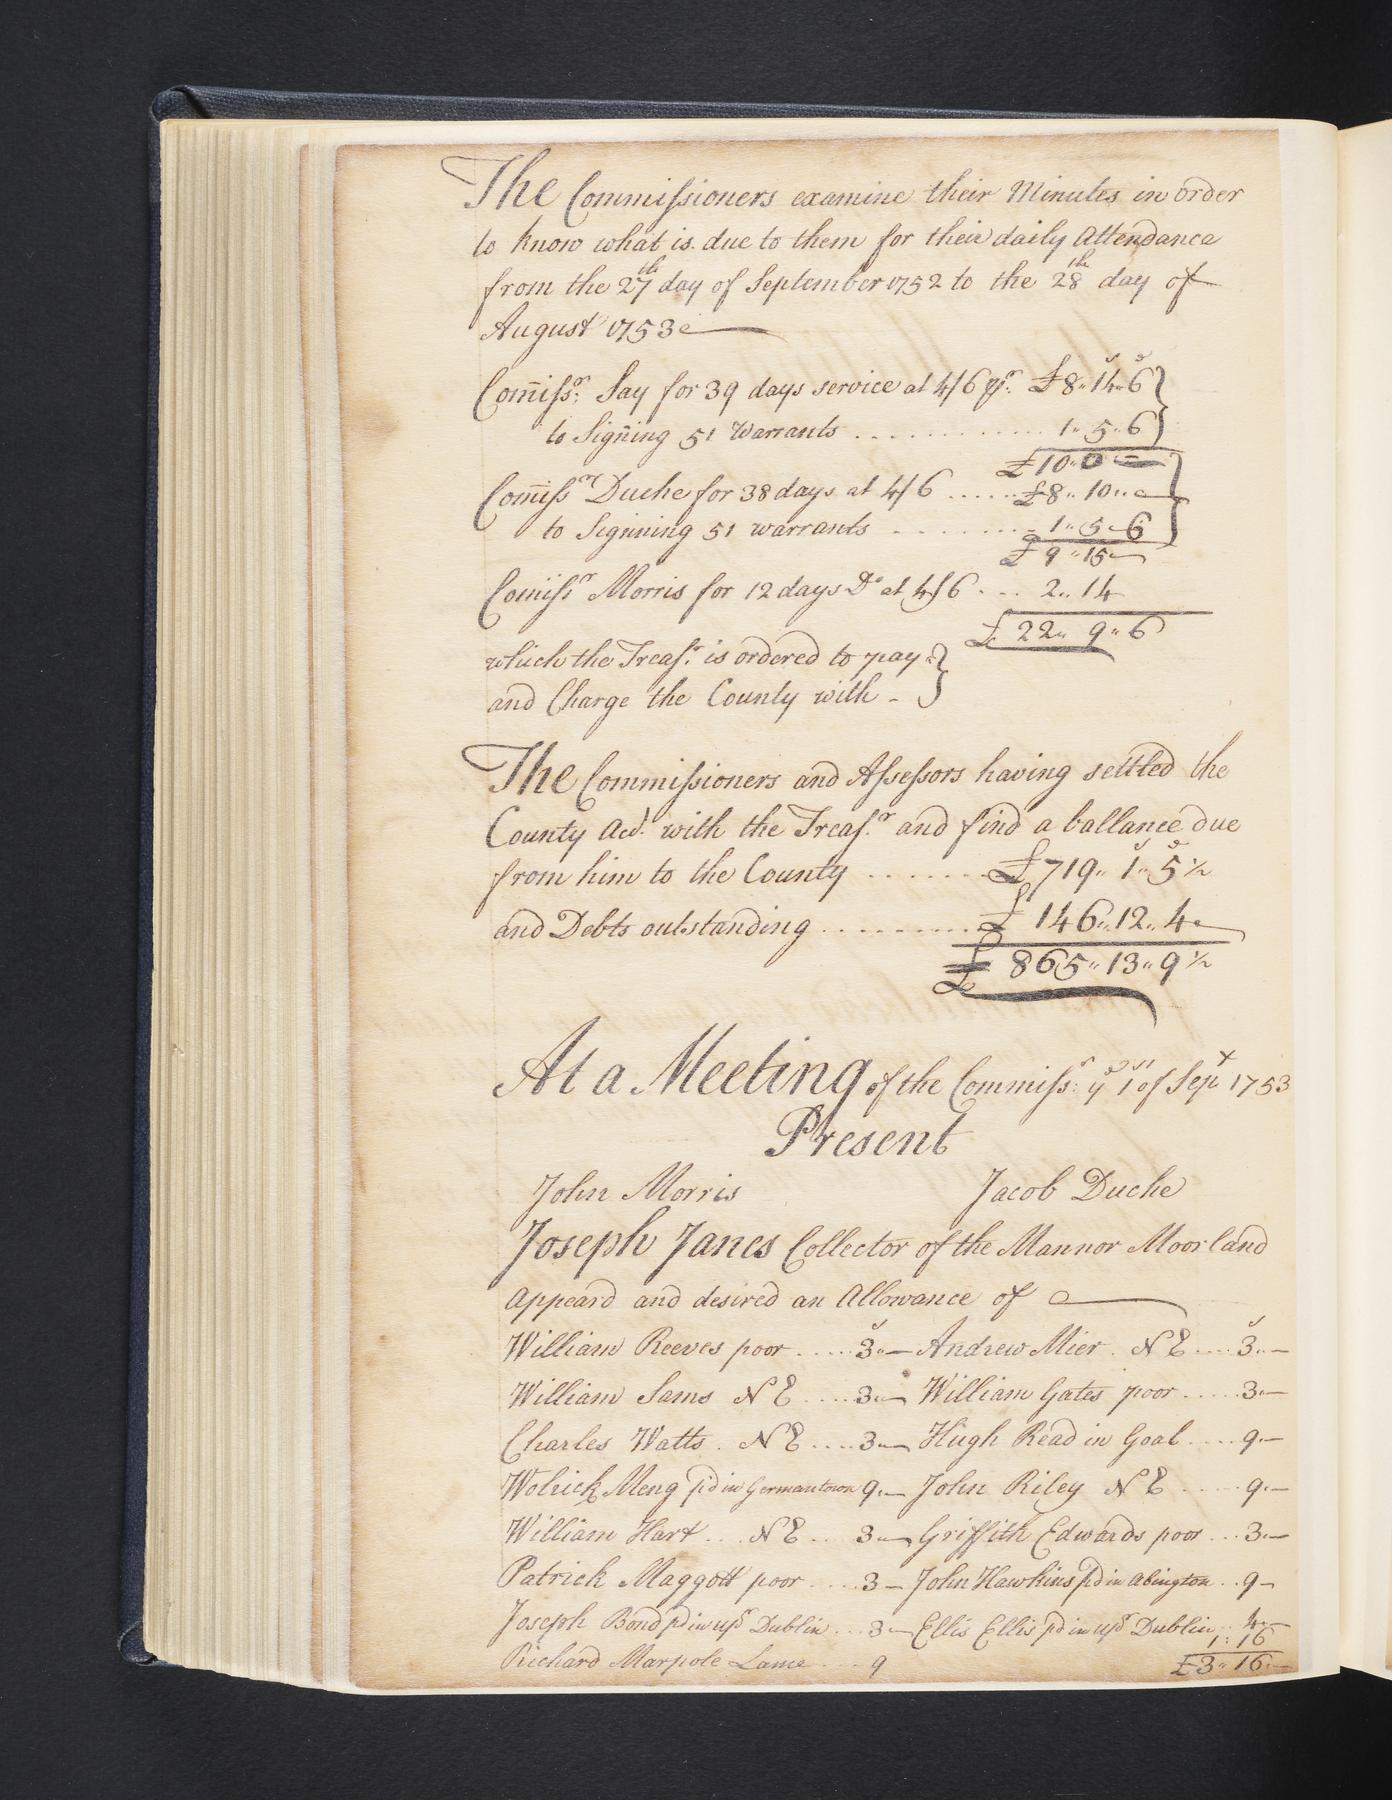 The Commissioners examine their Minutes in order
to know what is due to them for their daily Attendance
from the 27th day of September 1752 to the 28th day of
August 1753
Com̄issr: Say for 39 days service at 4/6 pr. £8"14"6
to Signing 51 Warrants ............ 1"5"6
£10"0"—
Com̄issr Duche for 38 days at 4/6 ...... £8"10"—
to Signing 51 warrants ......... 1"5"6
£9"15—
Com̄issr Morris for 12 days Do at 4/6 ... 2"14
£22"9"6
which the Treasr. is ordered to pay
and Charge the County with -
The Commissioners and Assessors having settled the
County Acct. with the Treasr. and find a ballance due
from him to the County ....... £719"1"5½
and Debts outstanding .......... £146"12"4
£865"13"9½
At a Meeting of the Commissrs: ye 1st of Sepr 1753
Present
John Morris Jacob Duche
Joseph Janes Collector of the Mannor Moorland
Appeard and desired an Allowance of
William Reeves poor .....3"— Andrew Mier. N E ....3"—
William Sams N E ....3"— William Gates poor .....3"—
Charles Watts. N E ....3"— Hugh Read in Goal ....9"—
Wolrick Meng pd in Germantown 9"— John Riley N E .....9"—
William Hart ... N E ... 3"— Griffith Edwards poor ...3"—
Patrick Maggott poor ....3— John Hawkins pd in Abington ..9-
Joseph Bond pd in upr Dublin ...3— Ellis Ellis pd in upr Dublin .. 4"—
1:16
Richard Marpole Lame ... 9 £3"16"—